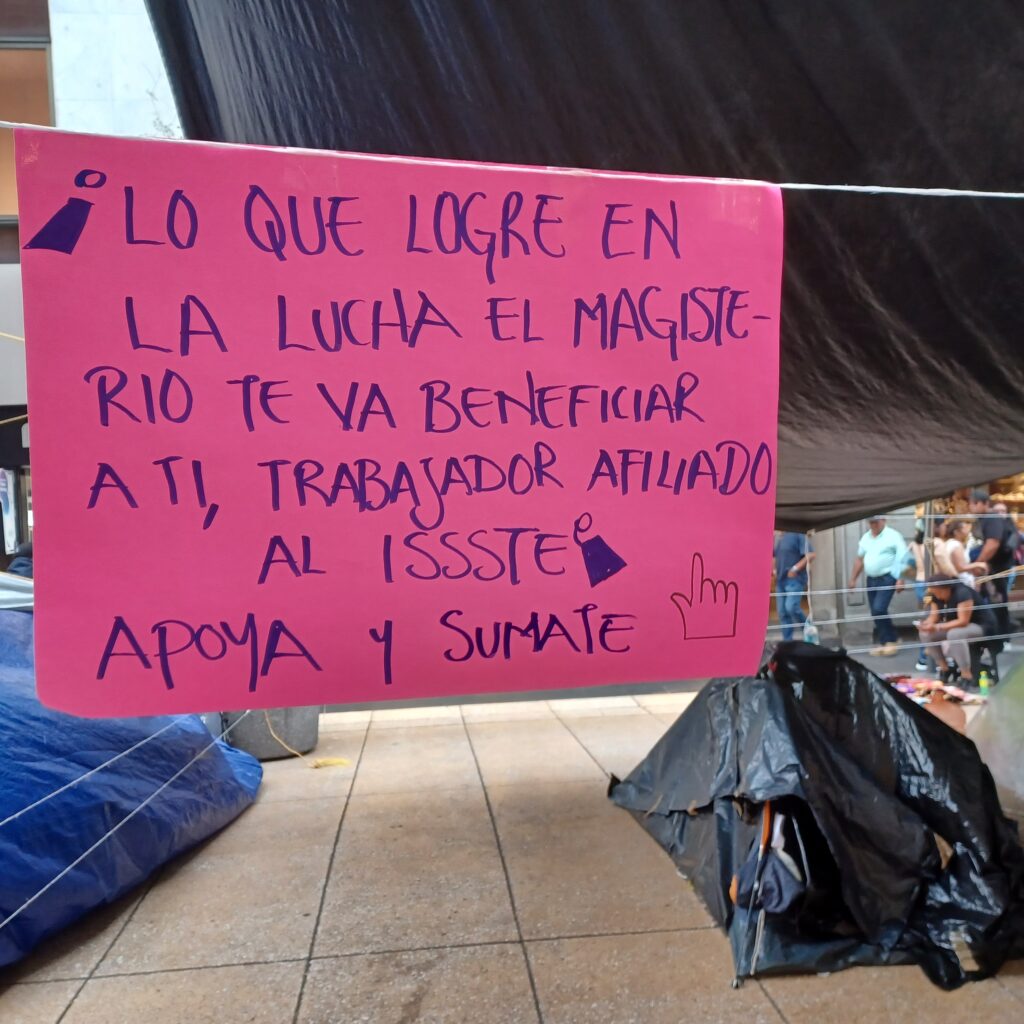 ¡LO QUE LOGRE EN
LA LUCHA EL MAGISTE-
RIO TE VA BENEFICIAR
A TI, TRABAJADOR AFILIADO
AL ISSSTE!
APOYA Y SUMATE